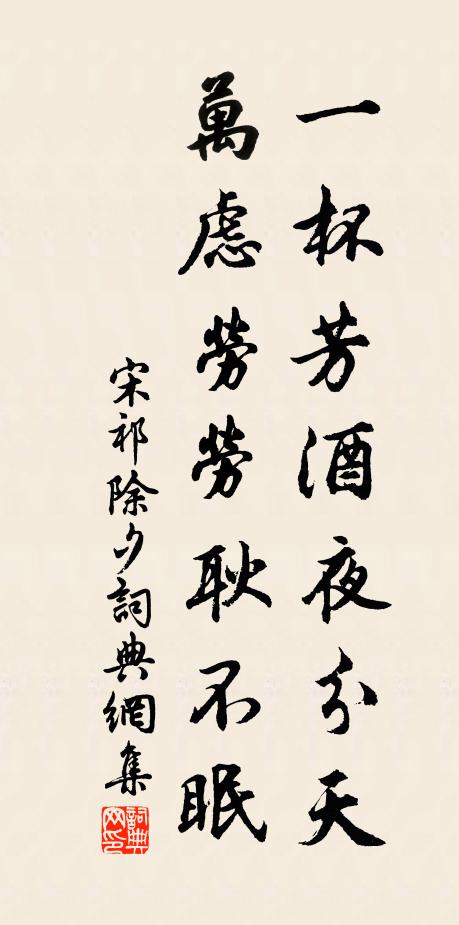 一杯芳酒夜分天
萬慮勞勞耿不眠
宋祁除夕詞典網集
詞典网印